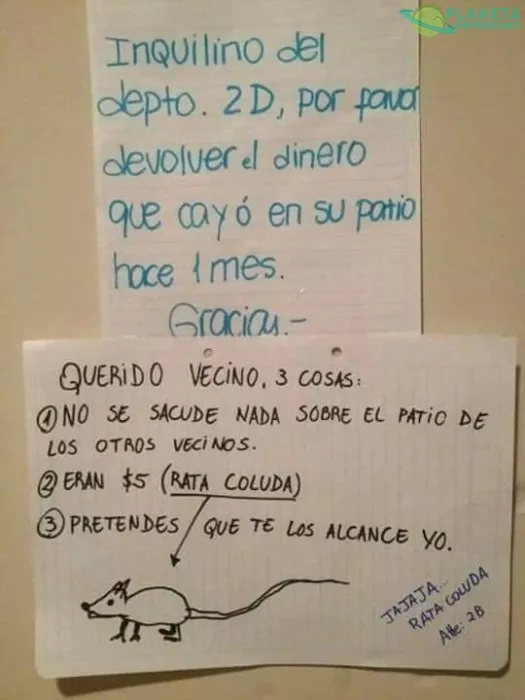 PLANETA
INQUILINO del
depto. 2D, por favor
devolver el dinero
que cayó en su patio
hace 1 mes.
Gracias.-
QUERIDO VECINO, 3 COSAS:
① NO SE SACUDE NADA SOBRE EL PATIO DE
LOS OTROS VECINOS.
② ERAN $5 (RATA COLUDA)
③ PRETENDES QUE TE LOS ALCANCE YO.
JAJAJA...
RATA COLUDA
Atte: 2B